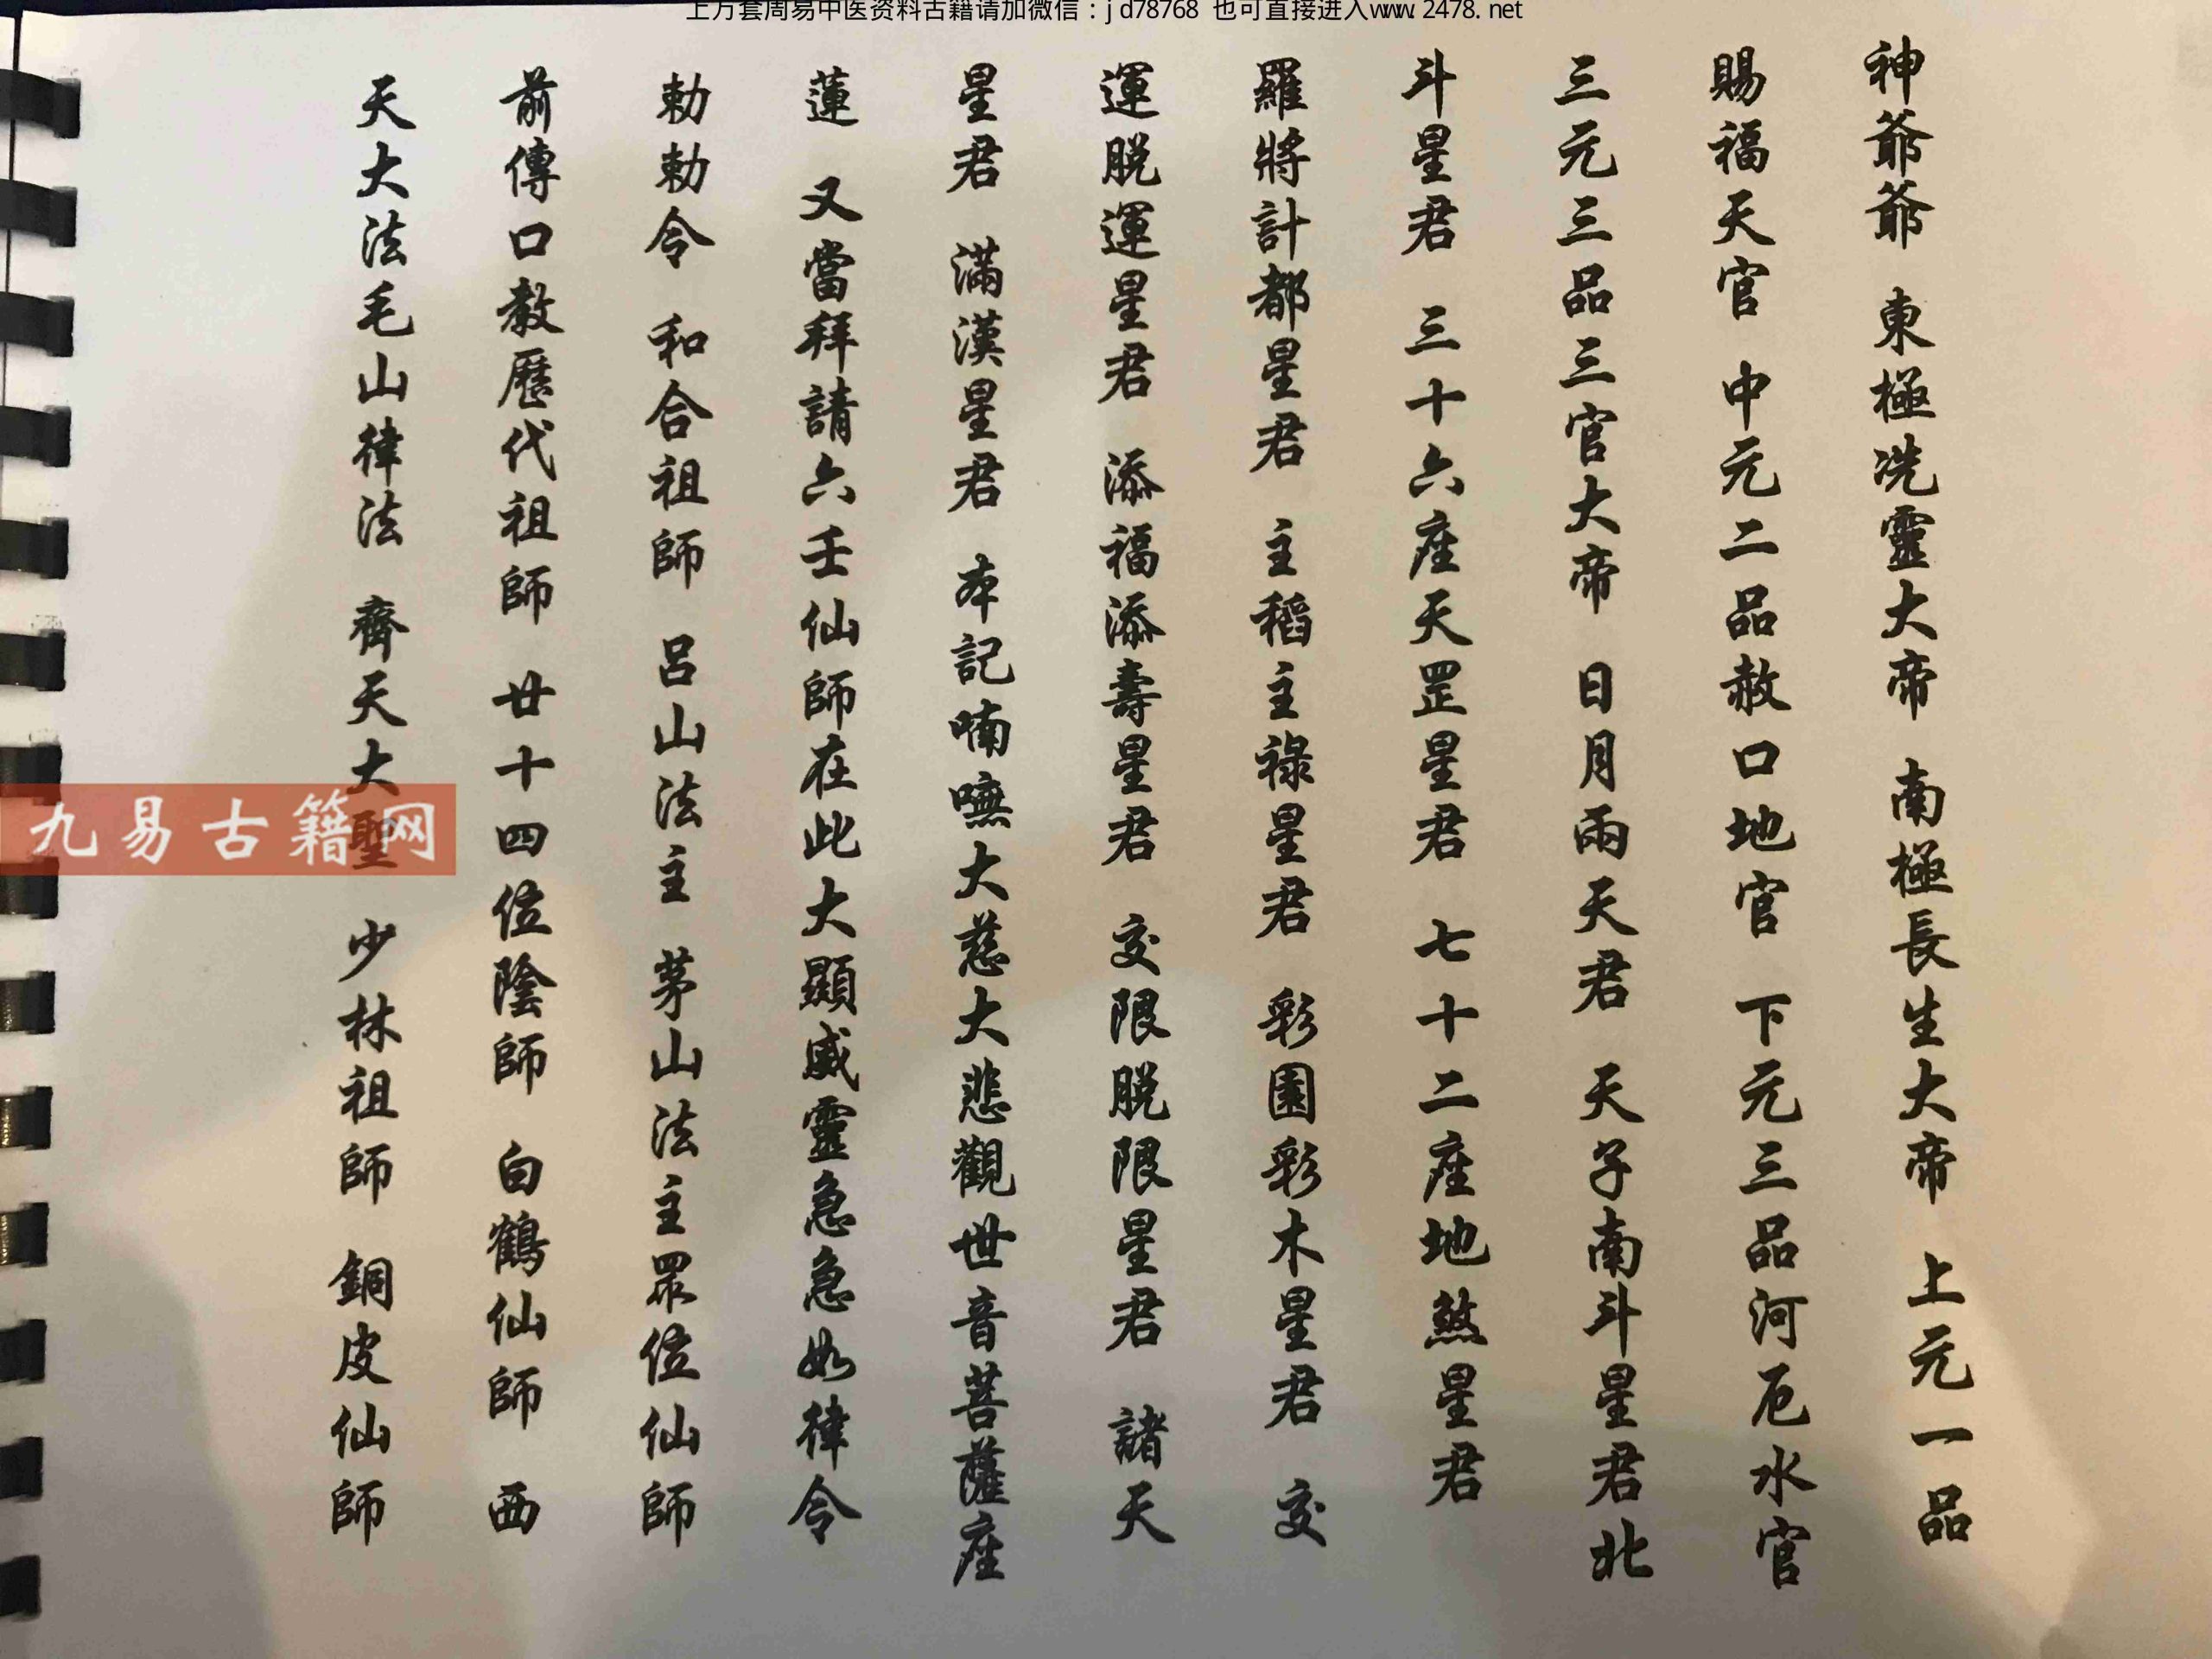 上万套周易中医资料古籍请加微信：jd78768 也可直接进入www.2478.net
神爺爺 東極冼靈大帝 南極長生大帝 上元一品
賜福天官 中元二品赦口地官 下元三品河厄水官
三元三品三官大帝 日月雨天君 天子南斗星君北
斗星君 三十六座天罡星君 七十二座地煞星君
羅將計都星君 主稻主祿星君 彩園彩木星君 交
運脱運星君 添福添壽星君 交限脱限星君 諸天
星君 滿漢星君 本記喃嘸大慈大悲觀世音菩薩座
蓮 又當拜請六壬仙師在此大顯威靈急急如律令
勅勅令 和合祖師 呂山法主 茅山法主眾位仙師
前傳口教歷代祖師 廿十四位陰師 白鶴仙師 西
天大法毛山律法 齊天大聖 少林祖師 銅皮仙師
九易古籍网